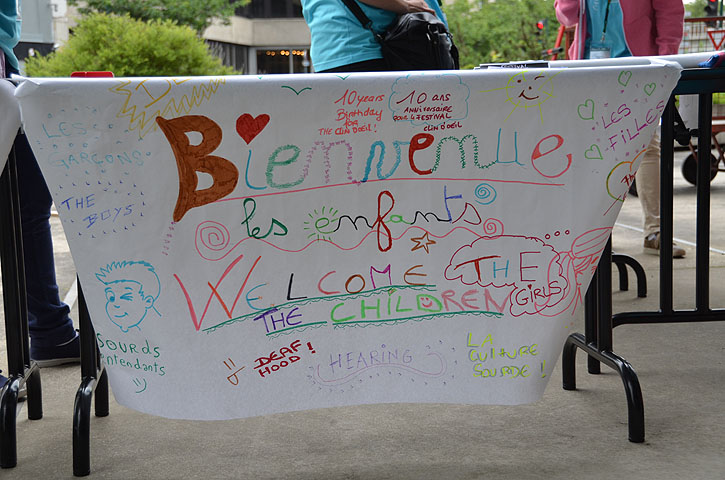 10 years
Birthday
for
THE CLIN D'OEIL!
10 ans
ANNIVERSAIRE
POUR LE FESTIVAL
CLIN D'OEIL
LES
GARÇONS
THE
BOYS
LES
FILLES
Bienvenue
les enfants
WELCOME THE
THE CHILDREN
THE
GIRLS
SOURDS
entendants
DEAF
HOOD!
HEARING
LA
CULTURE
SOURDE!